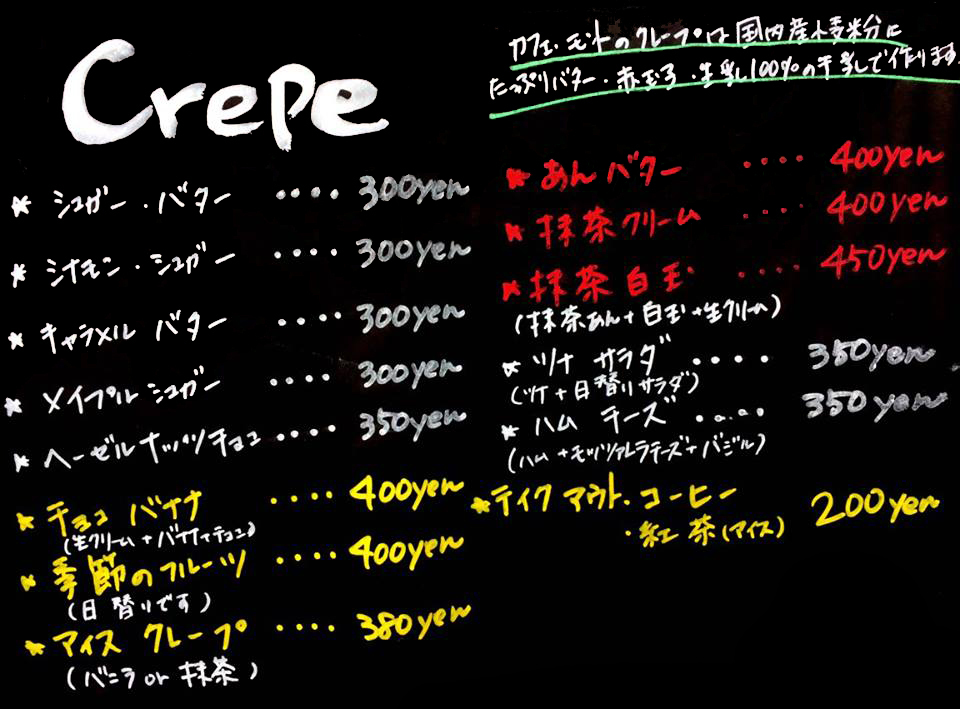 Crepe
★ シュガー・バター ････ 300yen
★ シナモン・シュガー ････ 300yen
★ キャラメル バター ････ 300yen
★ メイプル シュガー ････ 300yen
★ ヘーゼルナッツチョコ ････ 350yen
★ チョコ バナナ ････ 400yen
(生クリーム+バナナ+チョコ)
★ 季節のフルーツ ････ 400yen
(日替りです)
★ アイス クレープ ････ 380yen
(バニラ or 抹茶)
カフェ・モントのクレープは国内産小麦粉に
たっぷりバター・赤玉子・生乳100%の牛乳で作ります.
★ あんバター ････ 400yen
★ 抹茶クリーム ････ 400yen
★ 抹茶白玉 ････ 450yen
(抹茶あん+白玉+生クリーム)
★ ツナ サラダ ････ 350yen
(ツナ+日替りサラダ)
★ ハム チーズ ････ 350yen
(ハム+モッツァレラチーズ+バジル)
★テイクアウト・コーヒー 200yen
・紅茶(アイス)